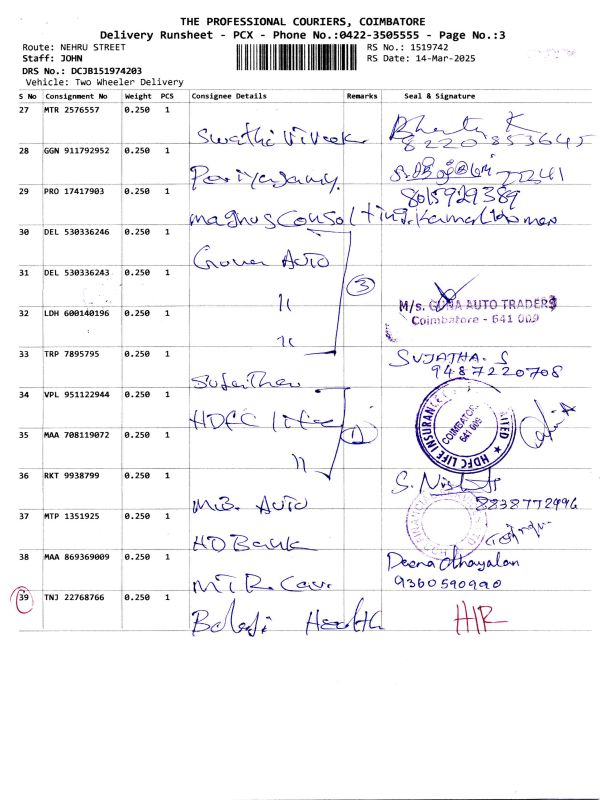 THE PROFESSIONAL COURIERS, COIMBATORE
Delivery Runsheet - PCX - Phone No.:0422-3505555 - Page No.:3
Route: NEHRU STREET RS No.: 1519742
Staff: JOHN RS Date: 14-Mar-2025
DRS No.: DCJB151974203
Vehicle: Two Wheeler Delivery
S No Consignment No Weight PCS Consignee Details Remarks Seal & Signature
27 MTR 2576557 0.250 1
Swathi Vivek 8220853645
28 GGN 911792952 0.250 1
Periyasamy 72241
29 PRO 17417903 0.250 1 8015929389
magnus Consolting
30 DEL 530336246 0.250 1
Grover Auto
31 DEL 530336243 0.250 1
11 3 M/s. GUNA AUTO TRADERS
32 LDH 600140196 0.250 1 Coimbatore - 641 009
11
33 TRP 7895795 0.250 1 SUJATHA. S
9487220708
34 VPL 951122944 0.250 1
HDFC life HDFC LIFE INSURANCE COIMBATORE 641 009
35 MAA 708119072 0.250 1
11
36 RKT 9938799 0.250 1 S.
M.B. Auto 8838772996
37 MTP 1351925 0.250 1
HD Bank
38 MAA 869369009 0.250 1 Deena dhayalan
MTR. 9360590990
39 TNJ 22768766 0.250 1
Balaji Health